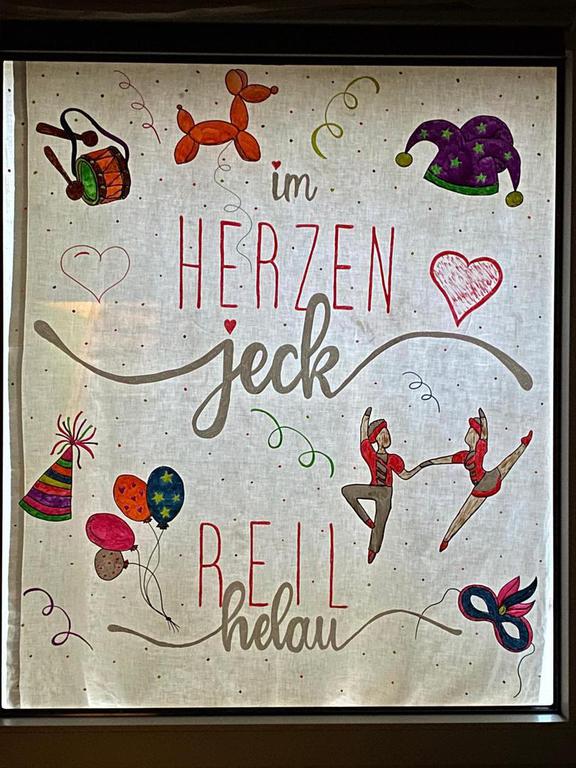 im
HERZEN
jeck
REIL
helau